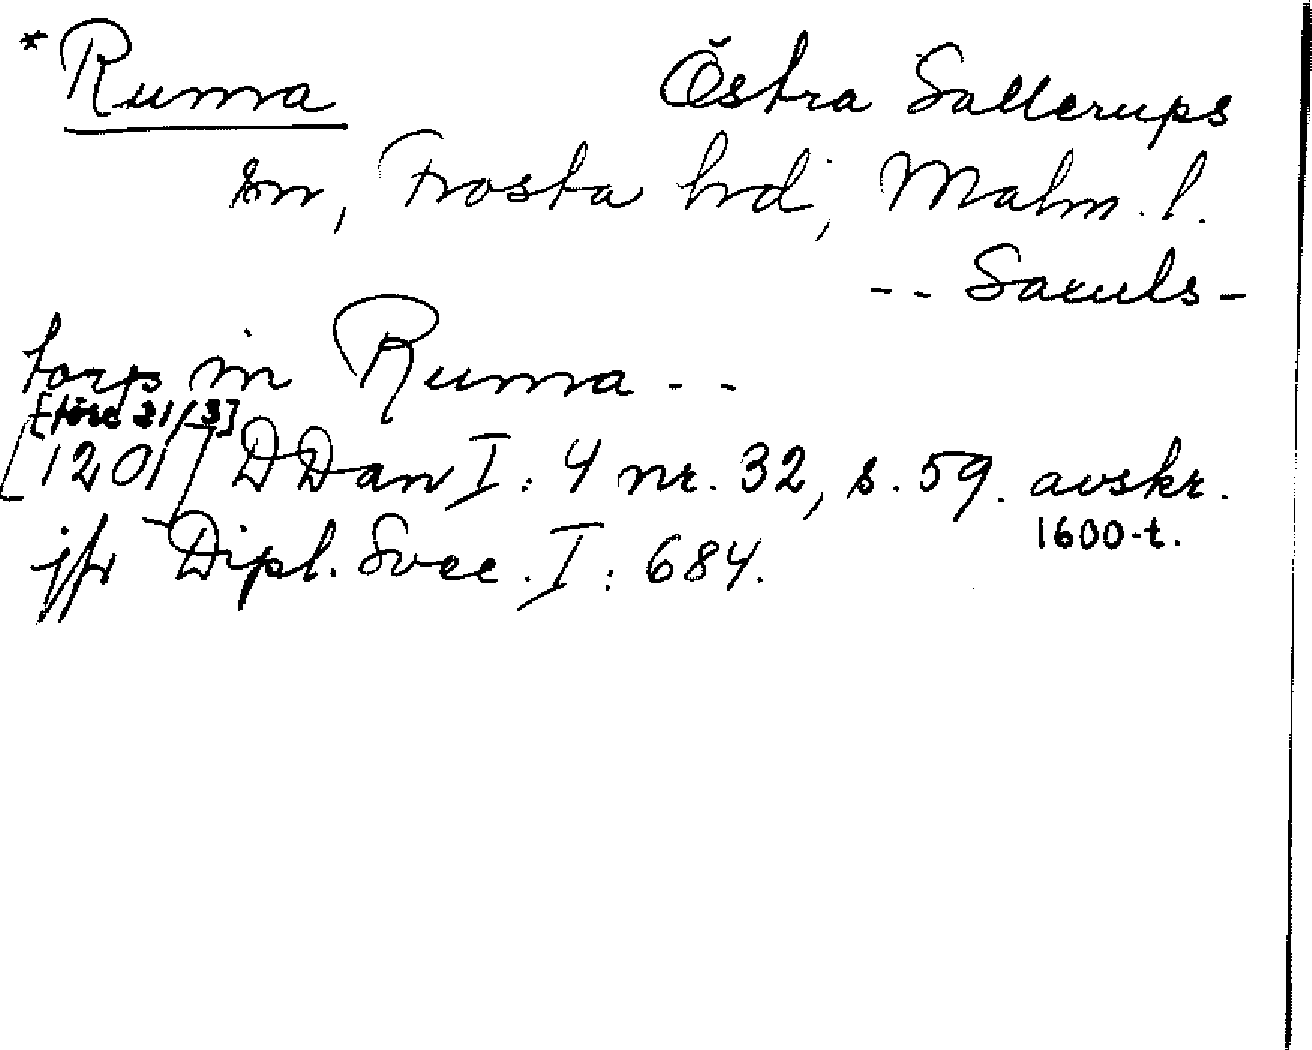 *Ruma Östra Sallerups
sn, Frosta hd, Malm. l.
-- Saxuls-
torp in Ruma --
[före 21/3]
[1201] DDan I: 4 nr. 32, s. 59. avskr.
1600-t.
jfr Dipl. Svec. I: 684.